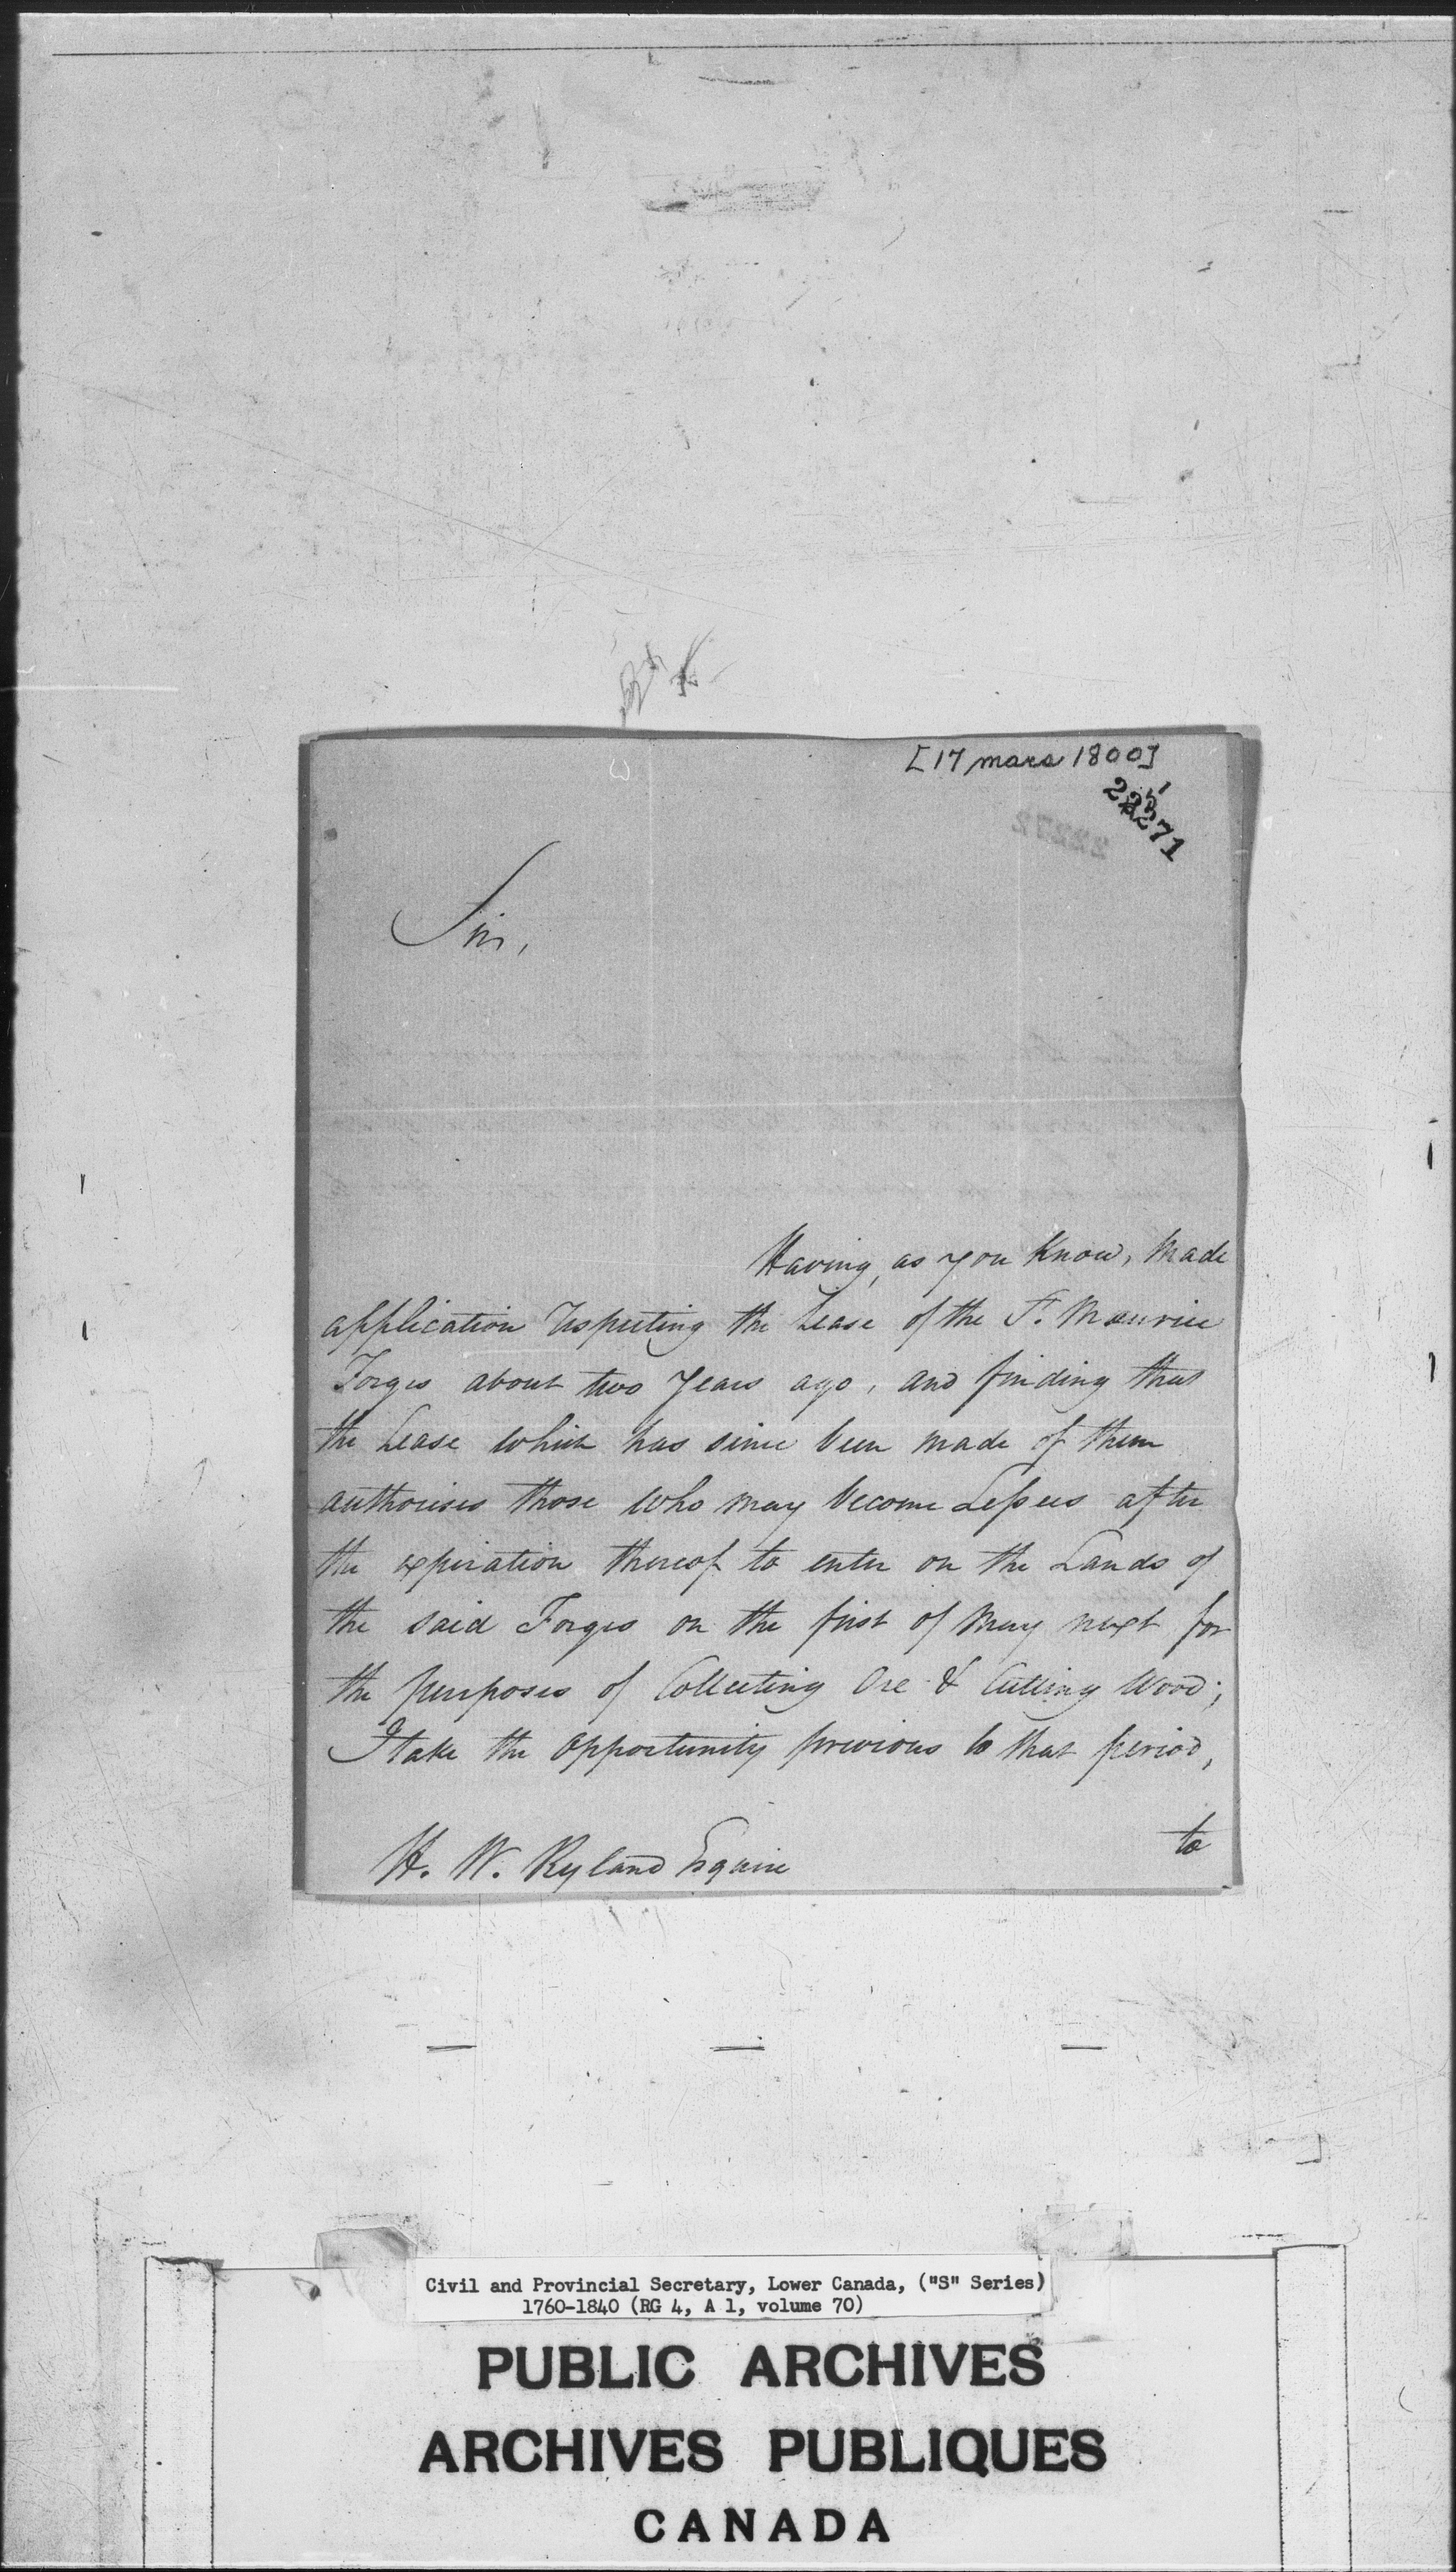 [17 mars 1800]
Sir,
Having, as you Know, made
application respecting the Lease of the St. Maurice
Forges about two Years ago, and finding that
the Lease which has since been made of them
authorises those who may become Lessees after
the expiration thereof to enter on the Lands of
the said Forges on the first of May next for
the purposes of Collecting Ore & Cutting Wood;
I take the opportunity previous to that period,
to
H. W. Ryland Esquire
Civil and Provincial Secretary, Lower Canada, ("S" Series)
1760-1840 (RG 4, A 1, volume 70)
PUBLIC ARCHIVES
ARCHIVES PUBLIQUES
CANADA